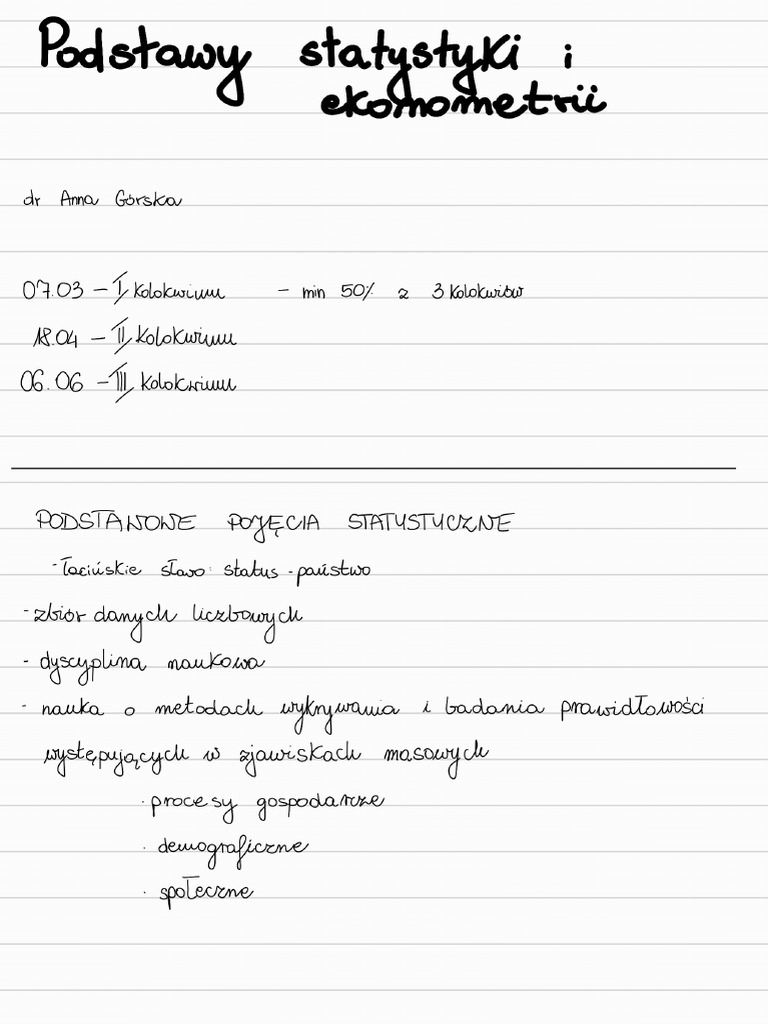 Podstawy statystyki i
ekonometrii
dr Anna Górska
07.03 – I kolokwium – min 50% z 3 kolokwiów
18.04 – II kolokwium
06.06 – III kolokwium
PODSTAWOWE POJĘCIA STATYSTYCZNE
- łacińskie słowo: status - państwo
- zbiór danych liczbowych
- dyscyplina naukowa
- nauka o metodach wykrywania i badania prawidłowości
występujących w zjawiskach masowych
· procesy gospodarcze
· demograficzne
· społeczne